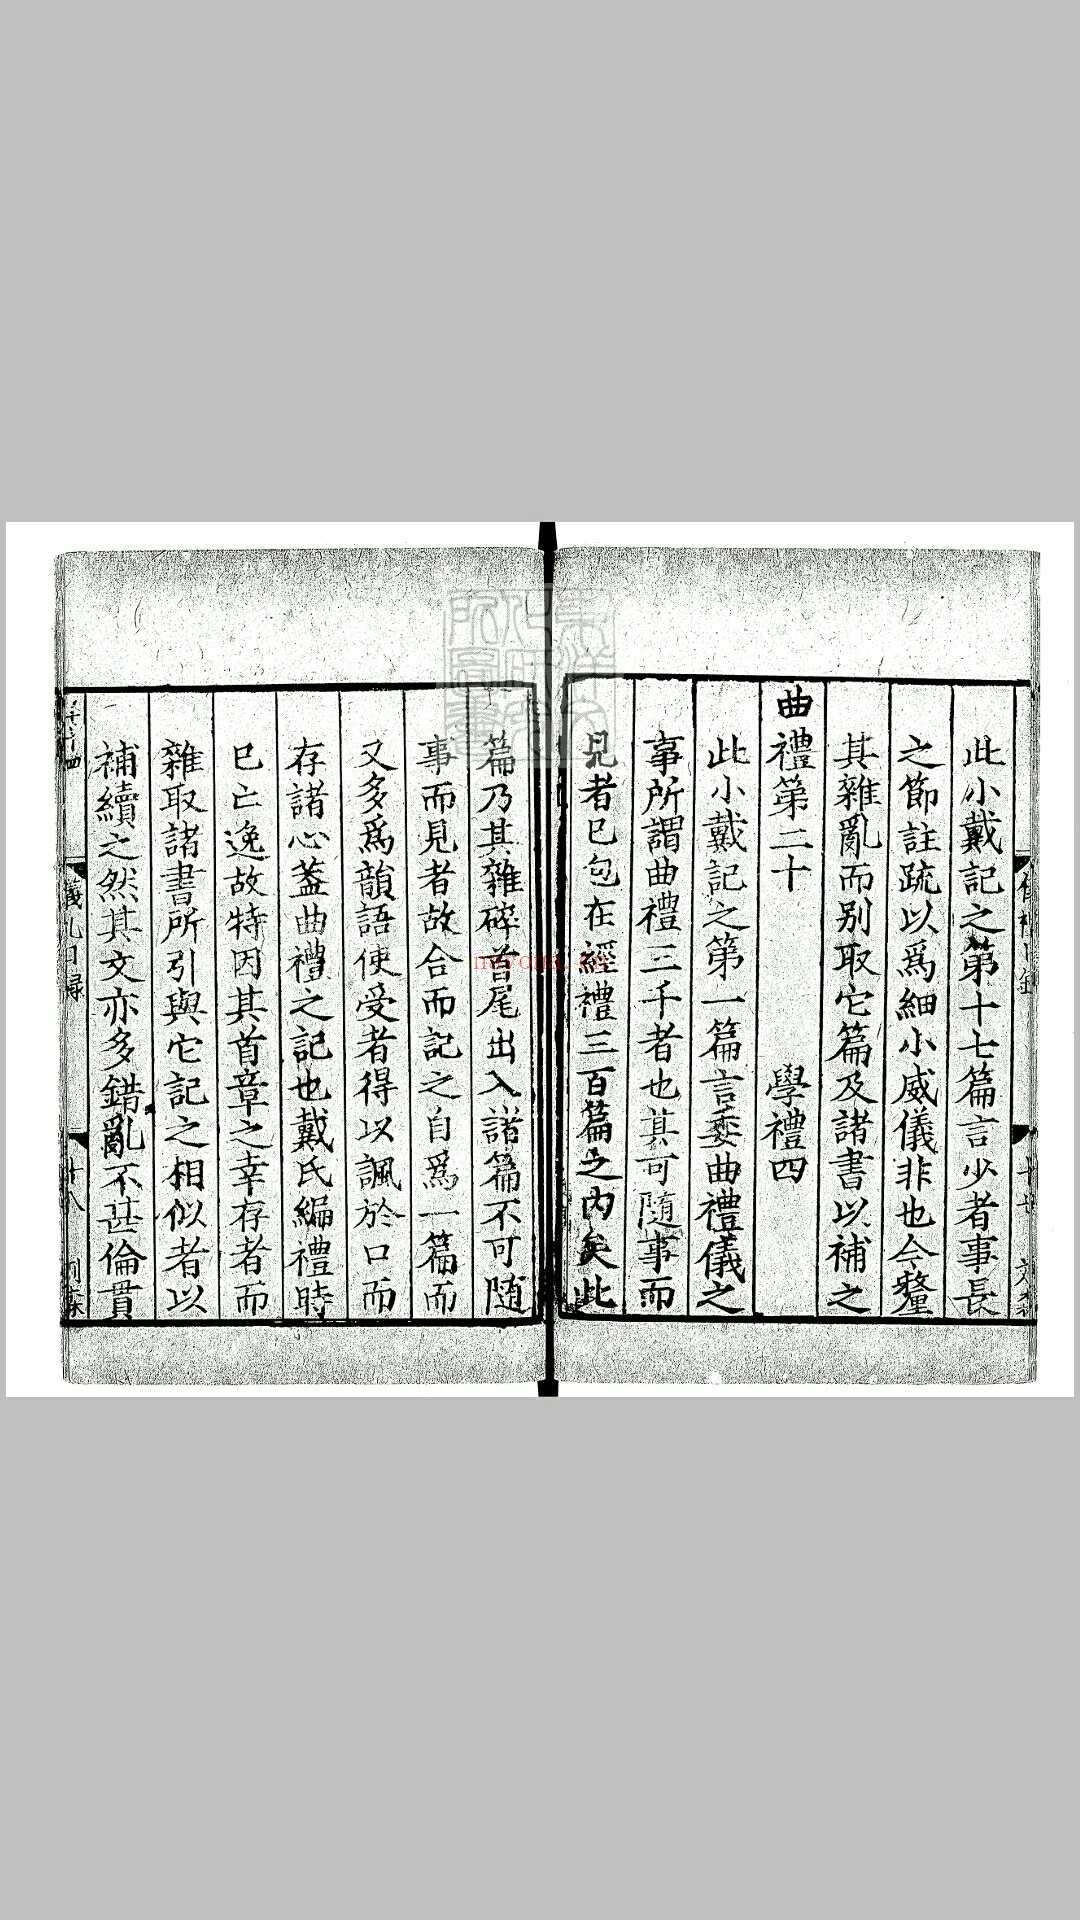 此小戴記之第十七篇言少者事長
之節註疏以爲細小威儀非也今釐
其雜亂而别取它篇及諸書以補之
曲禮第二十　學禮四
此小戴記之第一篇言委曲禮儀之
事所謂曲禮三千者也其可隨事而
見者已包在經禮三百篇之内矣此
篇乃其雜碎首尾出入諸篇不可随
事而見者故合而記之自爲一篇而
又多爲韻語使受者得以諷於口而
存諸心葢曲禮之記也戴氏編禮時
已亡逸故特因其首章之幸存者而
雜取諸書所引與它記之相似者以
補續之然其文亦多錯亂不甚倫貫
儀礼目録
十八
nayona.cn